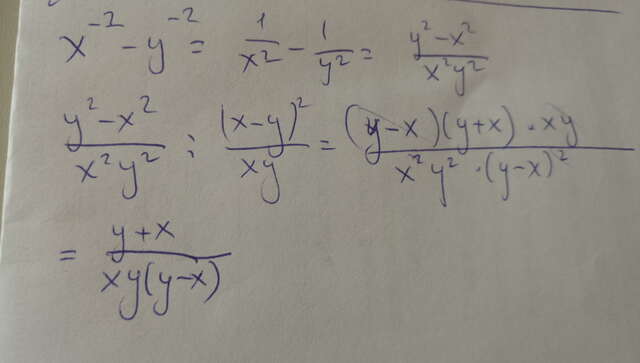 x⁻² - y⁻² = 1/x² - 1/y² = (y² - x²)/(x²y²)
(y² - x²)/(x²y²) : (x-y)²/(xy) = ((y-x)(y+x) · xy)/(x²y² · (y-x)²)
= (y+x)/(xy(y-x))